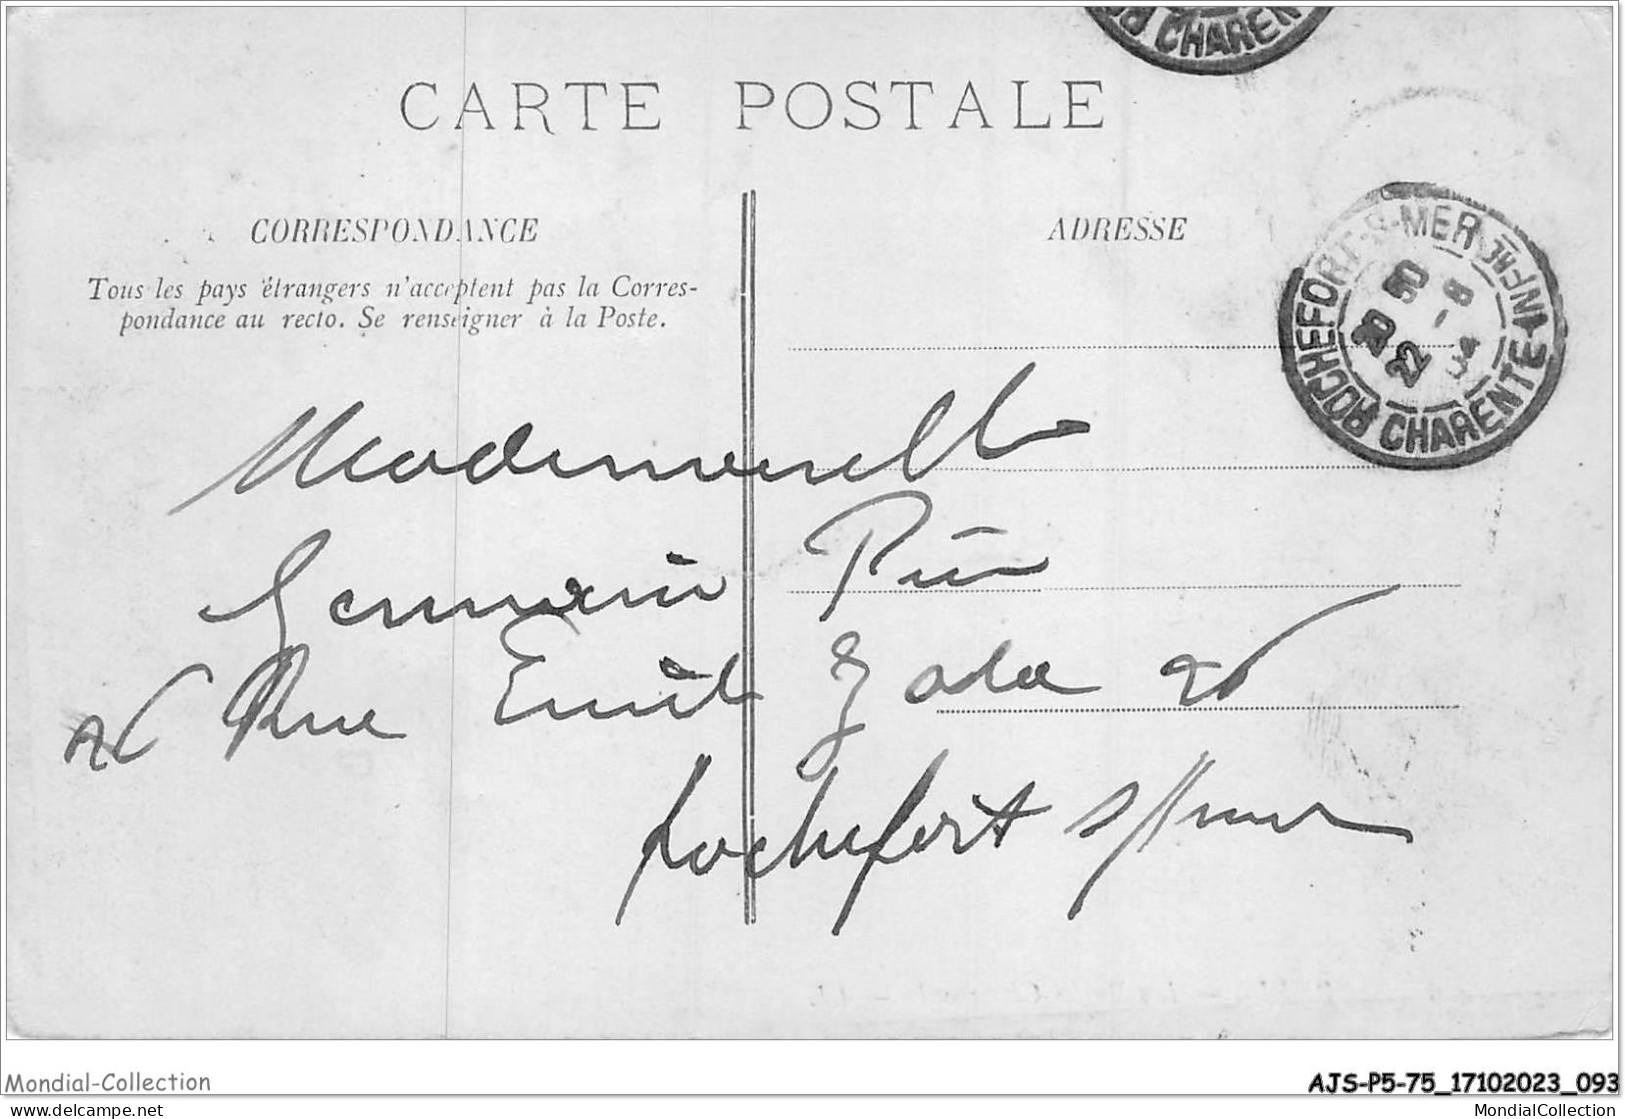 CHAREN
CARTE POSTALE
CORRESPONDANCE
Tous les pays étrangers n'acceptent pas la Corres-
pondance au recto. Se renseigner à la Poste.
ADRESSE
ROCHEFORT-S-MER
CHARENTE INFRE
22
Mademoiselle
Germaine
Rue Emile Zola 26
Rochefort s/mer
Mondial-Collection
delcampe.net
AJS-P5-75_17102023_093
MondialCollection